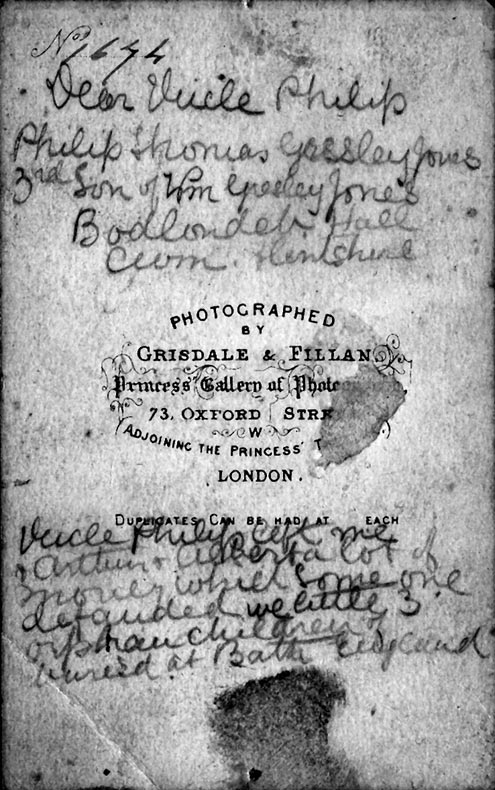 No 1644
Dear Uncle Philip
Philip Thomas Gressley Jones
3rd Son of Wm Gresley Jones
Bodlondeb Hall
Cwm. Flintshire
PHOTOGRAPHED
BY
GRISDALE & FILLAN
Princess' Gallery of
73, OXFORD
W
ADJOINING THE PRINCESS'
LONDON.
DUPLICATES CAN BE HAD AT EACH
Uncle Philip left me
Arthur & Alberta lot of
money which some one
defauded we little 3
orphan children of
buried at Bath England